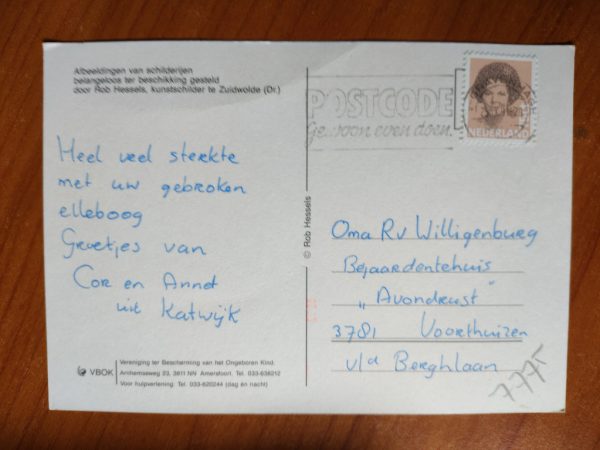 Afbeeldingen van schilderijen
belangeloos ter beschikking gesteld
door Rob Hessels, kunstschilder te Zuidwolde (Dr.)
POSTCODE
Gewoon even doen.
NEDERLAND
Heel veel sterkte
met uw gebroken
elleboog
Groetjes van
Cor en Annet
uit Katwijk
© Rob Hessels
Oma Rv Willigenburg
Bejaardentehuis
„ Avondrust "
3781 Voorthuizen
v/d Berghlaan
7775
VBOK
Vereniging ter Bescherming van het Ongeboren Kind.
Arnhemseweg 23, 3811 NN Amersfoort. Tel. 033-638212
Voor hulpverlening: Tel. 033-620244 (dag én nacht)